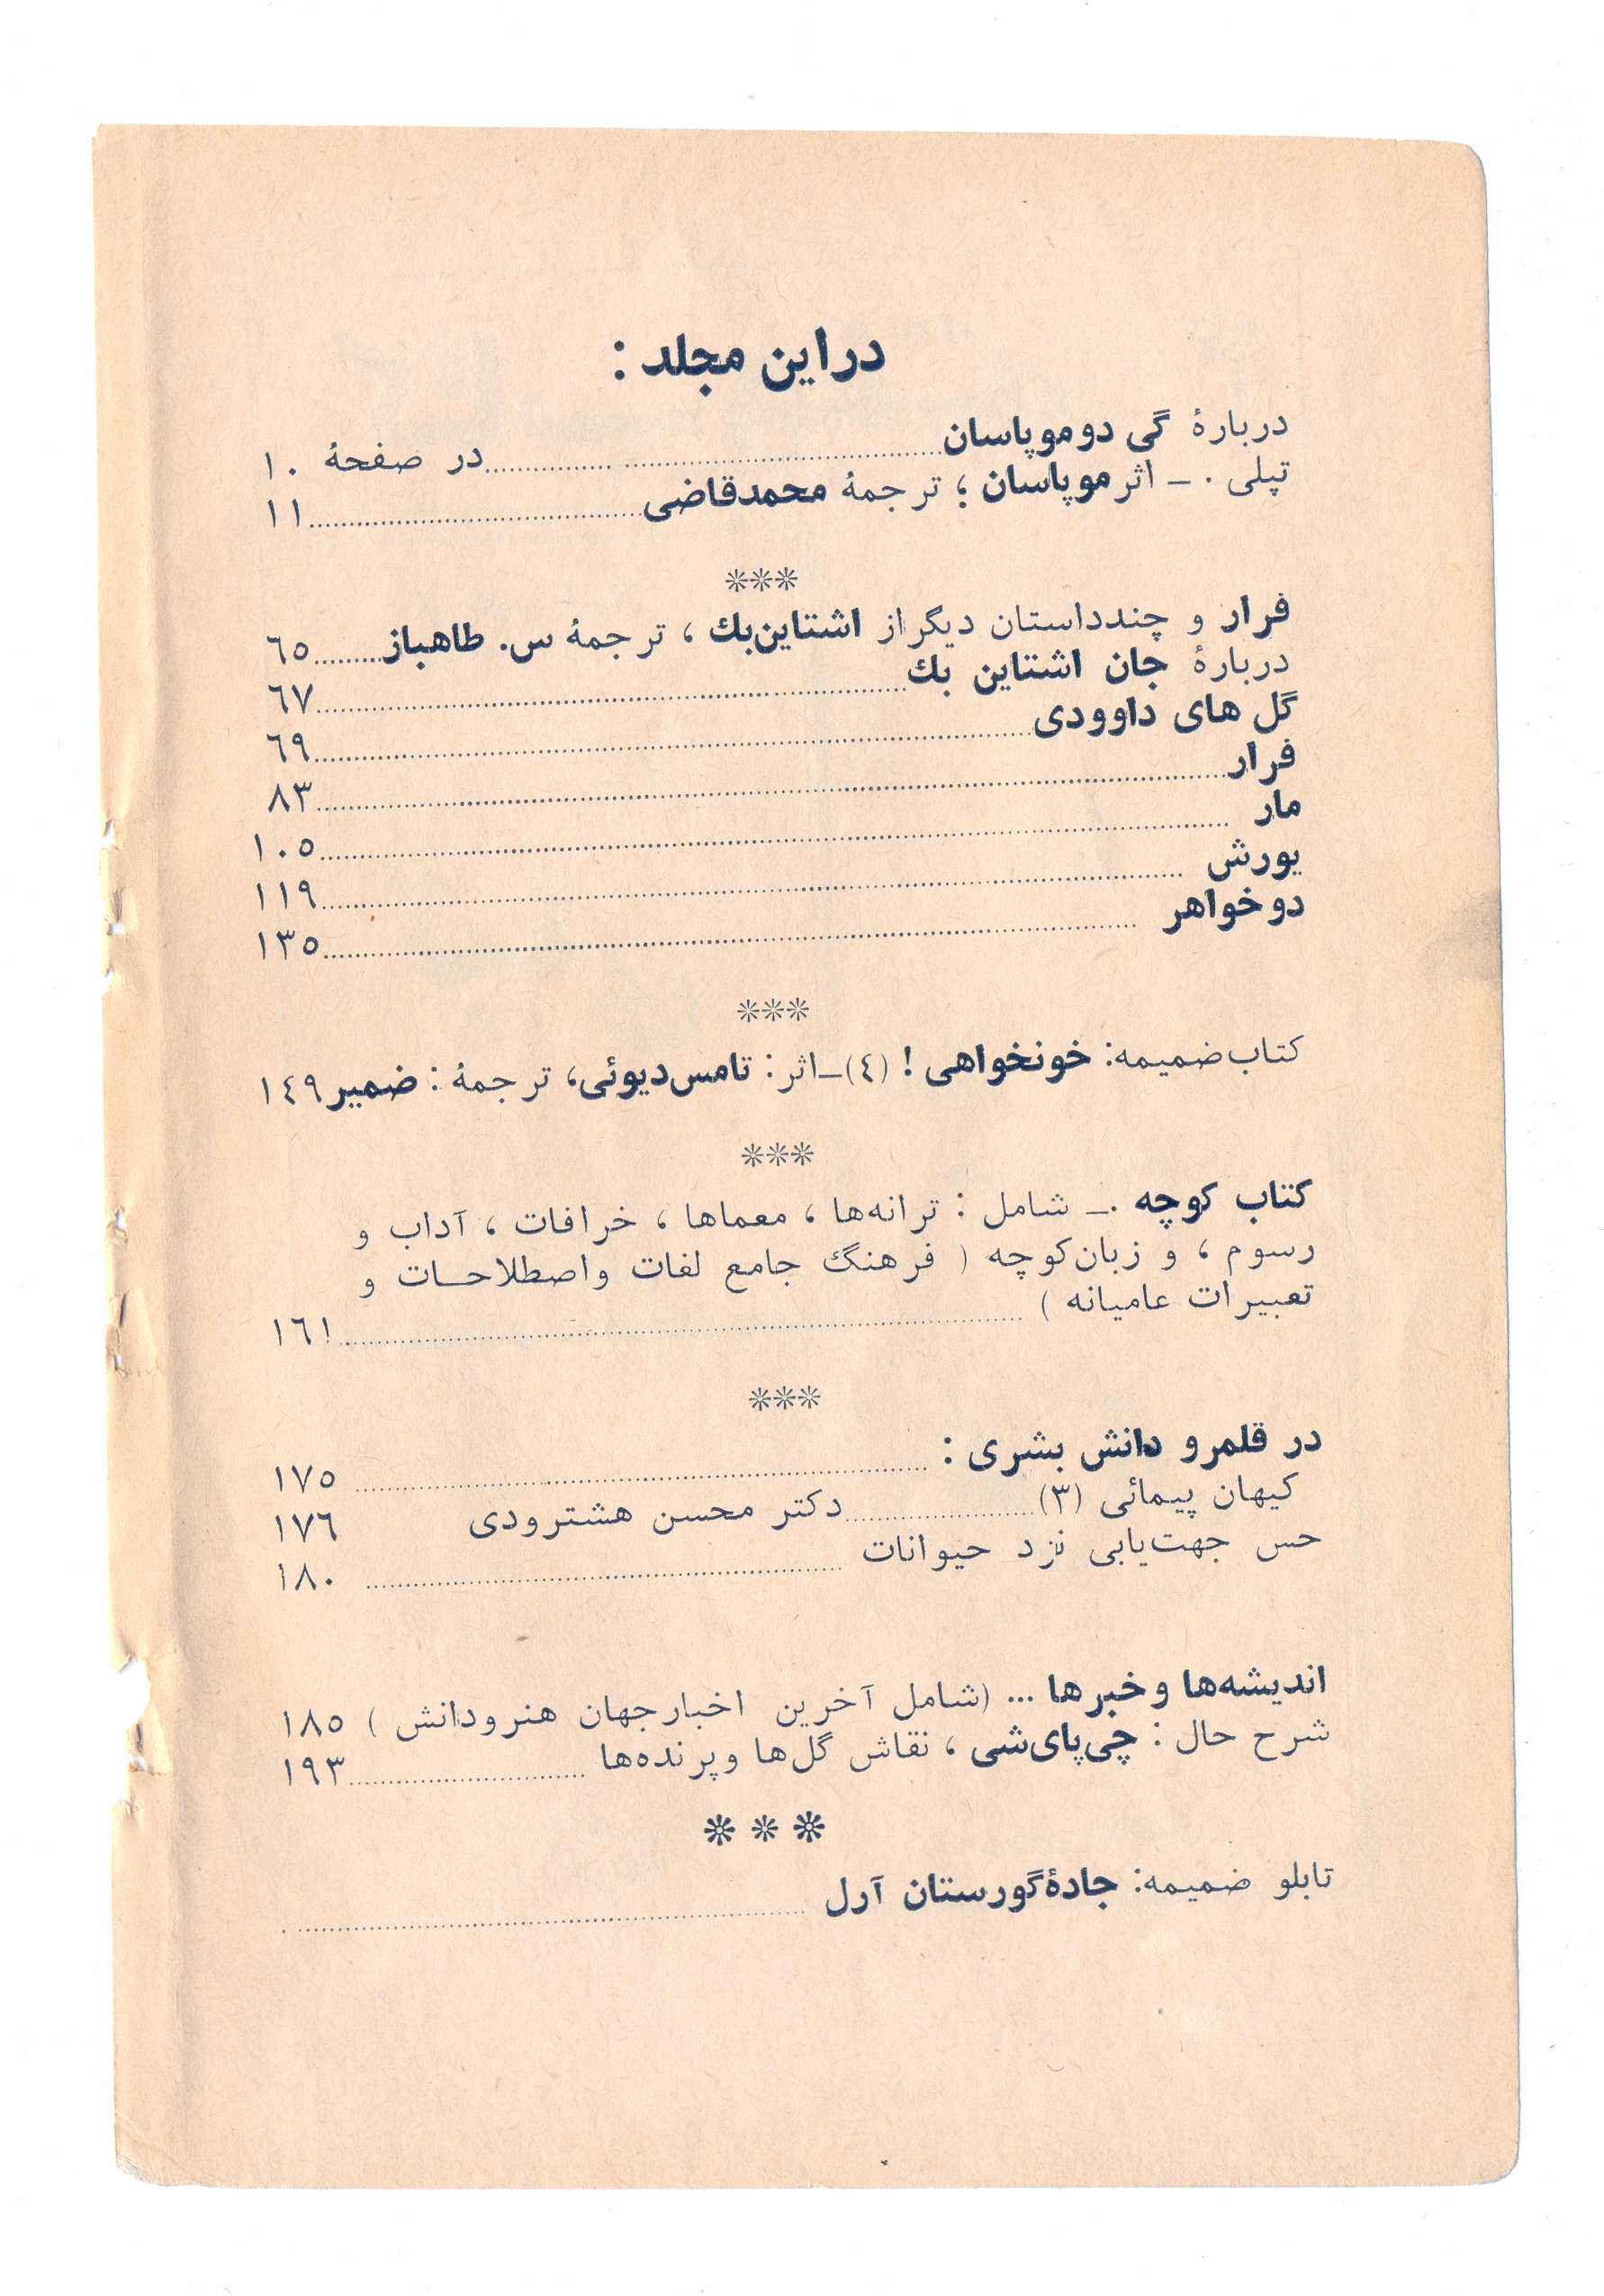 در این مجلد :
دربارهٔ گی دو موپاسان ........ در صفحهٔ ۱۰
تپلی . ـ اثر موپاسان ؛ ترجمهٔ محمد قاضی ........ ۱۱
***
فرار و چند داستان دیگر از اشتاین‌بك ، ترجمهٔ س. طاهباز ........ ٦٥
دربارهٔ جان اشتاین بك ........ ٦٧
گل های داوودی ........ ٦٩
فرار ........ ۸۳
مار ........ ۱۰٥
یورش ........ ۱۱۹
دو خواهر ........ ۱۳٥
***
کتاب ضمیمه: خونخواهی ! (٤) ـ اثر : تامس دیوئی، ترجمهٔ : ضمیر ۱٤۹
***
کتاب کوچه . ـ شامل : ترانه‌ها ، معماها ، خرافات ، آداب و
رسوم ، و زبان کوچه ( فرهنگ جامع لغات و اصطلاحات و
تعبیرات عامیانه ) ........ ۱٦۱
***
در قلمرو دانش بشری : ........ ۱۷٥
کیهان پیمائی (۳) ........ دکتر محسن هشترودی ۱۷٦
حس جهت‌یابی نزد حیوانات ........ ۱۸۰
اندیشه‌ها و خبرها ... (شامل آخرین اخبار جهان هنر و دانش ) ۱۸٥
شرح حال : چی‌پای‌شی ، نقاش گل‌ها و پرنده‌ها ........ ۱۹۳
* * *
تابلو ضمیمه: جادهٔ گورستان آرل ........ .